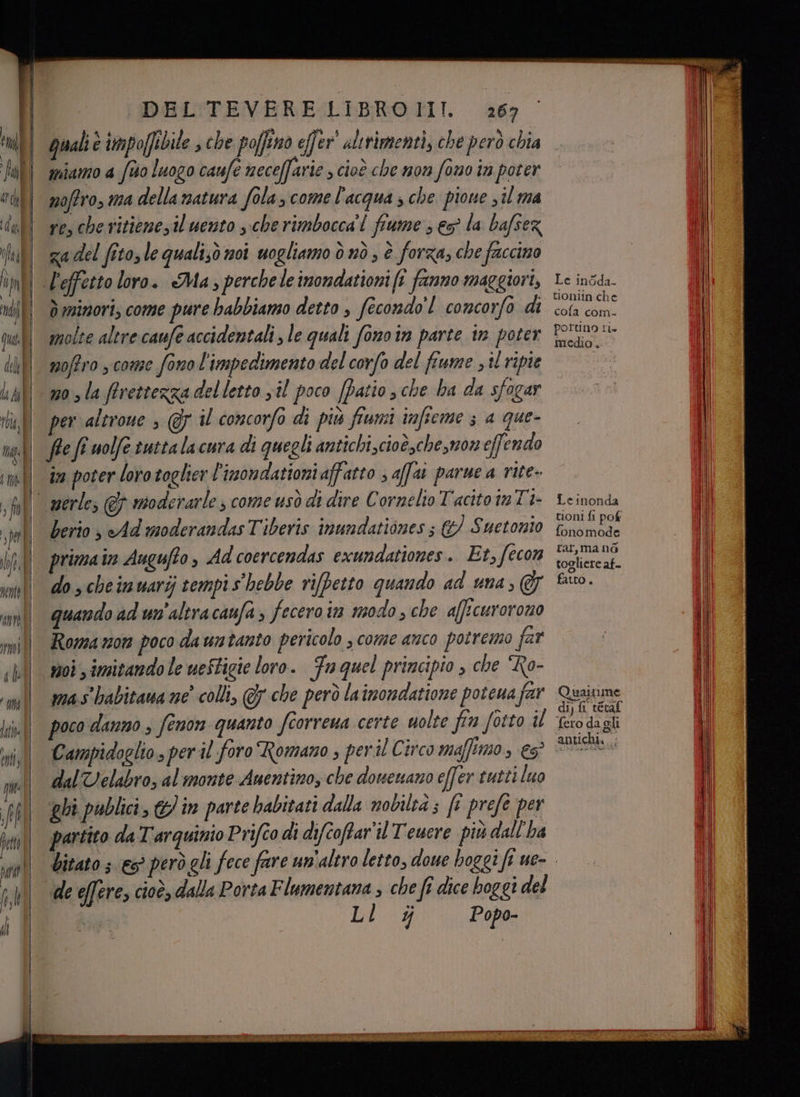 DEL TEVERE LIBRO III. 267
quali è impoſſibile, che poſſino eſſer' altrimenti, che però chia
miamo a ſuo luogo cauſe neceſſarie, cioè che non ſono in poter
noſtro, ma della natura ſola, come l'acqua, che pioue, il ma
re, che ritiene, il uento, che rimbocca'l fiume, & la baſsez
za del ſito, le quali, ò noi uogliamo ò nò, è forza, che faccino
l'effetto loro. Ma, perche le inondationi ſi fanno maggiori,
ò minori, come pure habbiamo detto, ſecondo'l concorſo di
molte altre cauſe accidentali, le quali ſono in parte in poter
noſtro, come ſono l'impedimento del corſo del fiume, il ripie
no, la ſtrettezza del letto, il poco ſpatio, che ha da sfogar
per altroue, & il concorſo di più fiumi inſieme; a que-
ſte ſi uolſe tutta la cura di quegli antichi, cioè, che, non eſſendo
in poter loro toglier l'inondationi affatto, aſſai parue a rite-
nerle, & moderarle, come usò di dire Cornelio Tacito in Ti-
berio, Ad moderandas Tiberis inundationes; & Suetonio
prima in Auguſto, Ad coercendas exundationes. Et, ſecon
do, che in uarij tempi s'hebbe riſpetto quando ad una, &
quando ad un'altra cauſa, fecero in modo, che aſſicurorono
Roma non poco da un tanto pericolo, come anco potremo far
noi, imitando le ueſtigie loro. Fu quel principio, che Ro-
ma s'habitaua ne' colli, & che però la inondatione poteua far
poco danno, ſenon quanto ſcorreua certe uolte fin ſotto il
Campidoglio, per il foro Romano, per il Circo maſſimo, &
dal Velabro, al monte Auentino, che doueuano eſſer tutti luo
ghi publici, & in parte habitati dalla nobiltà; ſi preſe per
partito da Tarquinio Priſco di diſcoſtar'il Teuere più dall'ha
bitato; & però gli fece fare un'altro letto, doue hoggi ſi ue-
de eſſere, cioè, dalla Porta Flumentana, che ſi dice hoggi del
Ll ij Popo-
Le inōda-
tioniin che
coſa com-
portino ri-
medio.
Le inonda
tioni ſi poſ
ſono mode
rar, ma nō
togliere af-
fatto.
Quai rime
dij ſi tētaſ
ſero da gli
antichi.